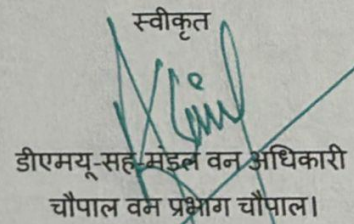 स्वीकृत
डीएमयू-सह-मंडल वन अधिकारी
चौपाल वन प्रभाग चौपाल।